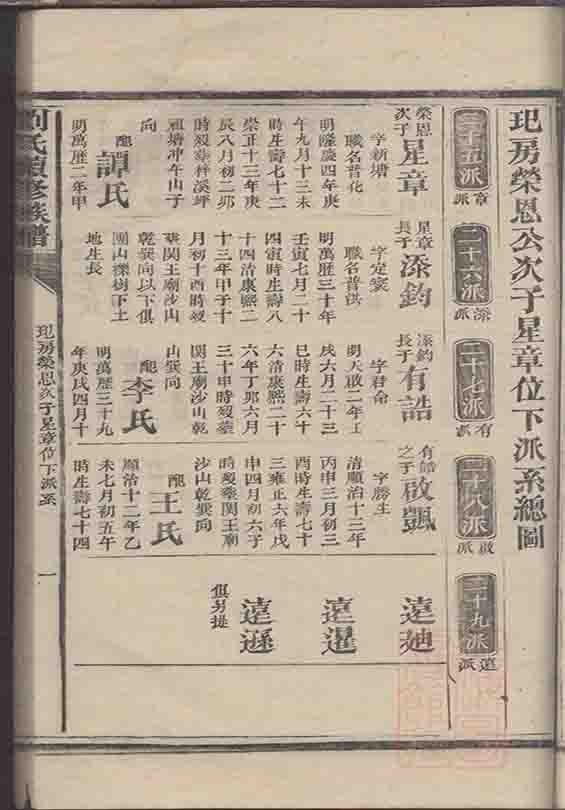 玘房榮恩公次子星章位下派系總圖
二十五派
章派
二十六派
添派
二十七派
有派
二十八派
啟派
二十九派
遠派
榮恩次子
星章
字新墻
職名普化
明隆慶四年庚
午九月十三未
時生壽七十二
崇正十三年庚
辰八月初二卯
時歿葬梓溪坪
祖塘冲午山子
向
配譚氏
明萬歷二年甲
星章長子
添鈞
字定宸
職名普洪
明萬歷三十年
壬寅七月二十
四寅時生壽八
十四清康熙二
十三年甲子十
月初十酉時歿
葬関王廟沙山
乾巽向以下俱
團山櫟樹下土
地生長
添鈞長子
有誥
字君命
明天啟二年壬
戌六月二十三
巳時生壽六十
六清康熙二十
六年丁卯六月
三十甲時歿葬
関王廟沙山乾
山巽向
配李氏
明萬歷三十九
年庚戌四月十
有誥之子
啟凱
字勝生
清順治十三年
丙申三月初三
酉時生壽七十
三雍正六年戊
申四月初六子
時歿葬関王廟
沙山乾巽向
配王氏
順治十二年乙
未七月初五午
時生壽七十四
遠廸
遠暹
遠遜
俱另提
劉氏續修族譜
玘房榮恩次子星章位下派系
一